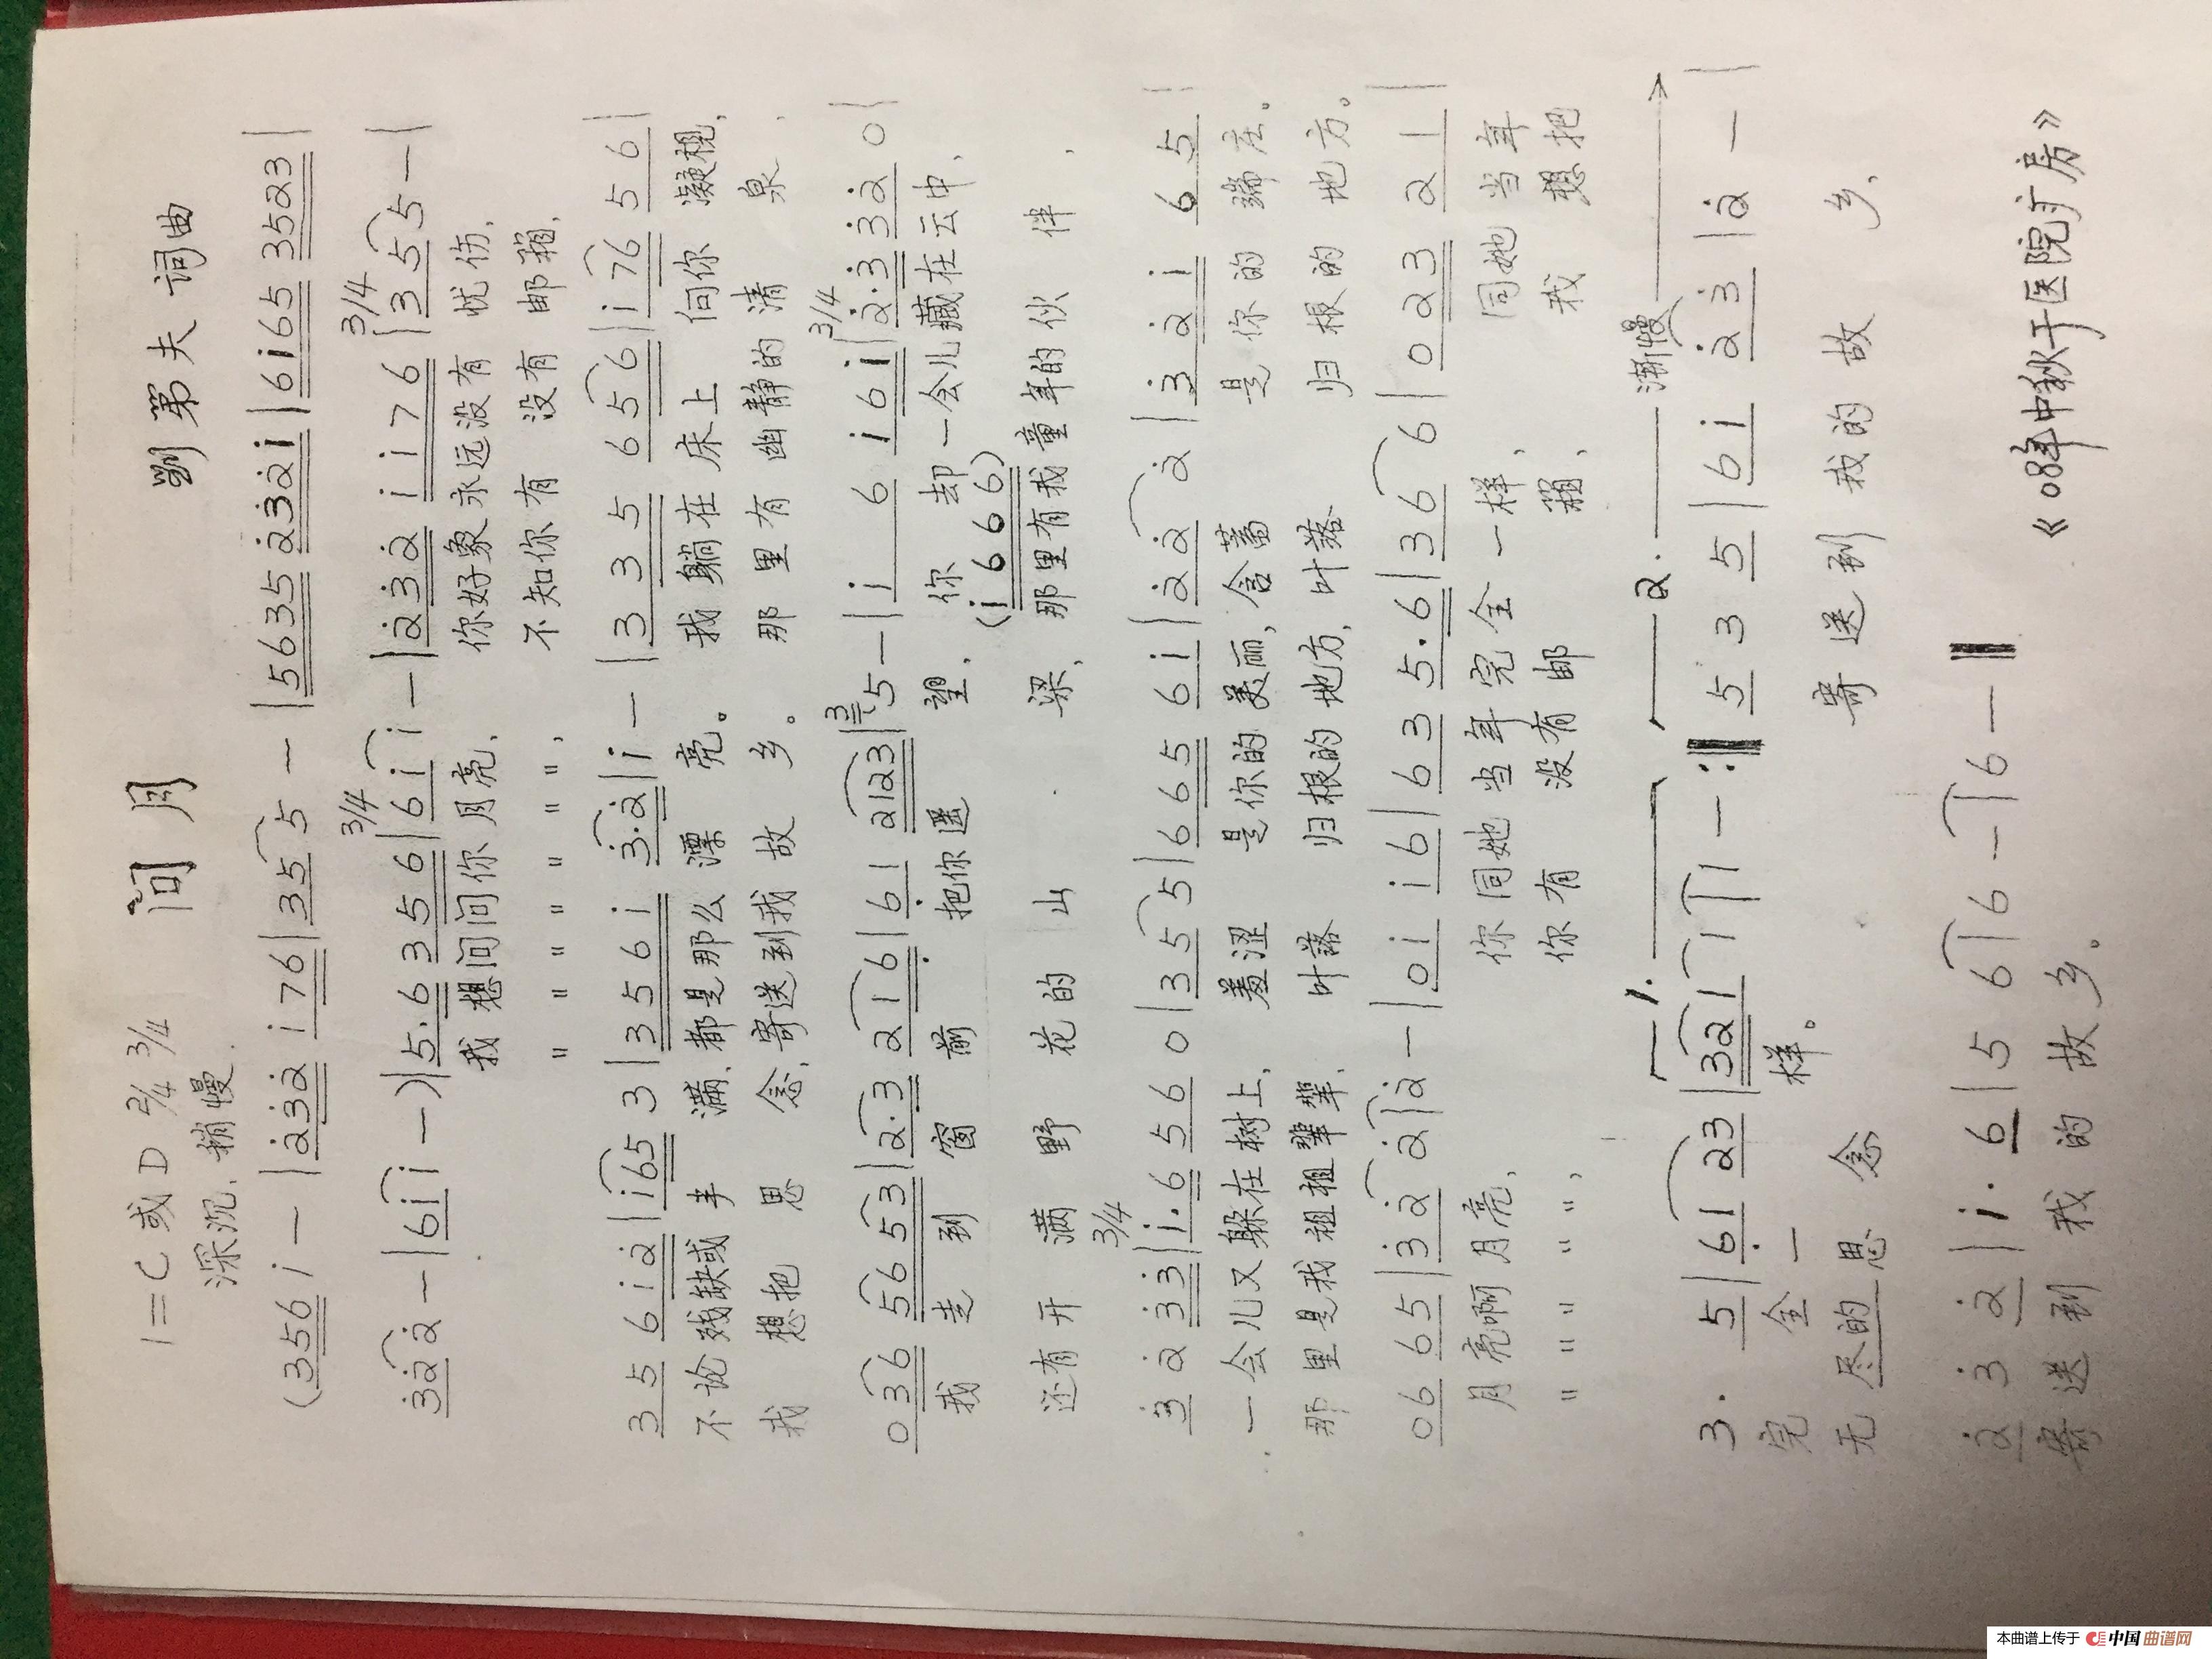 问月
1=C 或 D 2/4 3/4
深沉、稍慢.
劉第夫 词曲
(356 i — | 232 i 76 | 35 5 — | 5635 232i | 6i65 3523 |
3/4 3/4
32 2 — | 6i i — ) | 5.6 356 | 6i i — | 232 i i76 | 35 5 — |
我想问问你月亮, 你好象永远没有忧伤,
" " " " " " ", 不知你有没有邮箱,
35 6i2 | i65 3 | 3 5 6 i 3.2 | i — | 3 3 5 6 56 | i 76 5 6 |
不论残缺或半满, 都是那么漂亮。 我躺在床上向你凝视,
我想把思念, 寄送到我故乡。 那里有幽静的清泉,
3/4
0 36 56 53 | 2.3 2 1 6 | 6 1 2123 | 5 — | i 6 i 6i | 2.3 32 0 |
我走到窗前把你遥望, 你却一会儿藏在云中,
(i 6 6 6 6)
还有开满野花的山梁, 那里有我童年的伙伴,
3/4
3 2 33 | i.6 5 6 0 | 35 5 | 6 65 6 i | 2 2 2 | 3 2 i 6 5 |
一会儿又躲在树上, 羞涩是你的美丽, 含蓄是你的端庄。
那里是我祖祖辈辈, 叶落归根的地方, 叶落归根的地方。
06 65 | 32 2 | 2 — | 0 i i 6 | 6 3 5.6 | 36 6 | 0 23 2 1 |
月亮啊月亮, 你同她当年完全一样, 同她当年
" " " " ", 你有没有邮箱, 我想把
1. 2. 渐慢
3. 5 | 61 23 | 321 1 | 1 — :‖ 5 3 5 | 6 i 23 | 2 — |
完全一样。
无尽的思念 寄送到我的故乡,
2 3 2 | i. 6 | 5 6 | 6 — | 6 — ‖
寄送到我的故乡。
《08年中秋于医院疒房》
本曲谱上传于 中国曲谱网